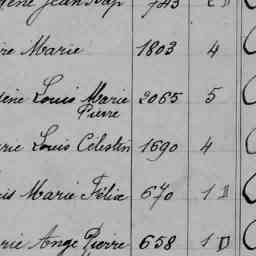 gène Jean Bap 743 2 D
re Marie 1803 4
gène Louis Marie 2065 5
Pierre
rie Louis Célestin 1690 4
is Marie Félix 670 1 D
rie Ange Pierre 658 1 D